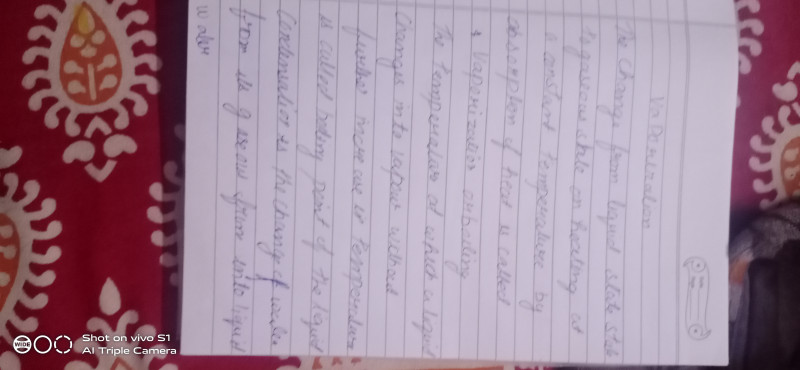 Vaporization
The change from liquid state state
to gaseous state on heating at
a constant temperature by
absorption of heat is called
Vaporization or boiling
The temperature at which a liquid
Changes into vapour without
further increase in temperature
is called boiling point of the liquid
Condensation is the change of water
from its gaseous from into liquid
water
WIDE
Shot on vivo S1
AI Triple Camera